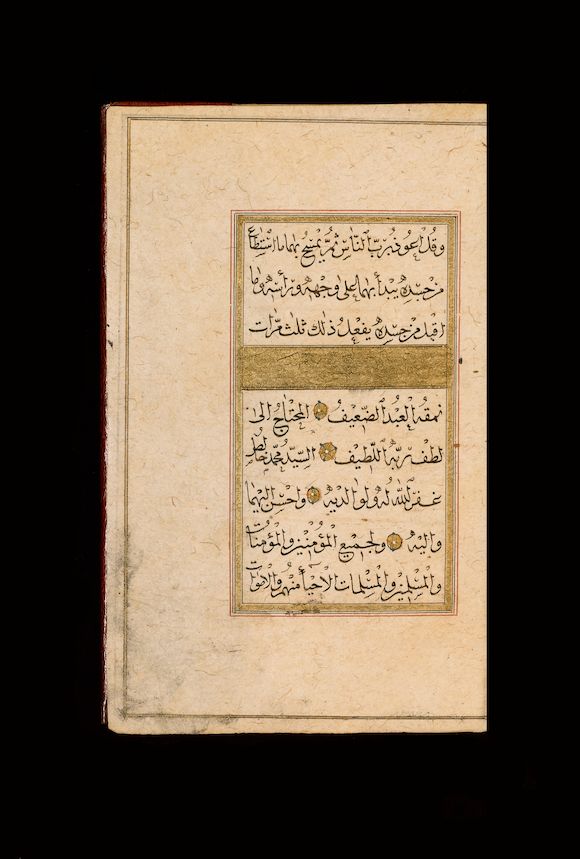 وَقُلْ اَعُوذُ بِرَبِّ النَّاسِ ثُمَّ يَمْسَحُ بِهِمَا مَا اسْتَطَاعَ
مِنْ جَسَدِهِ يَبْدَأُ بِهِمَا عَلَى وَجْهِهِ وَرَأْسِهِ وَمَا
اَقْبَلَ مِنْ جَسَدِهِ يَفْعَلُ ذٰلِكَ ثَلٰثَ مَرَّات
نمقه العَبْدُ الضَّعِيفُ المُحْتَاجُ اِلىٰ
لُطْفِ رَبِّهِ اللَّطِيفِ السَّيِّدُ مُحَمَّد
غَفَرَ اللّٰهُ لَهُ وَلِوَالِدَيْهِ وَاَحْسَنَ اِلَيْهِمَا
وَاِلَيْهِ وَلِجَمِيعِ الْمُؤْمِنِينَ وَالْمُؤْمِنَات
وَالْمُسْلِمِينَ وَالْمُسْلِمَاتِ الْاَحْيَاءِ مِنْهُمْ وَالْاَمْوَات